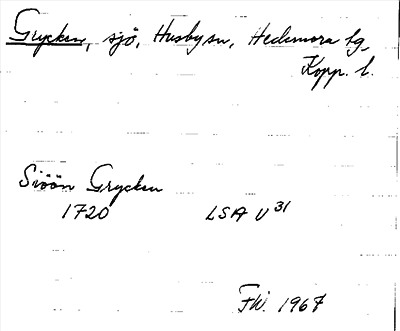 Grycken, sjö, Husby sn, Hedemora tg,
Kopp. l.
Siöön Grycken
1720 LSA U 31
FW. 1967